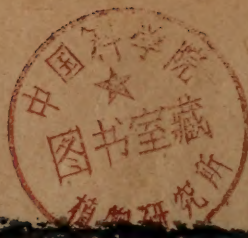 中国科学院
图书室藏
植物研究所